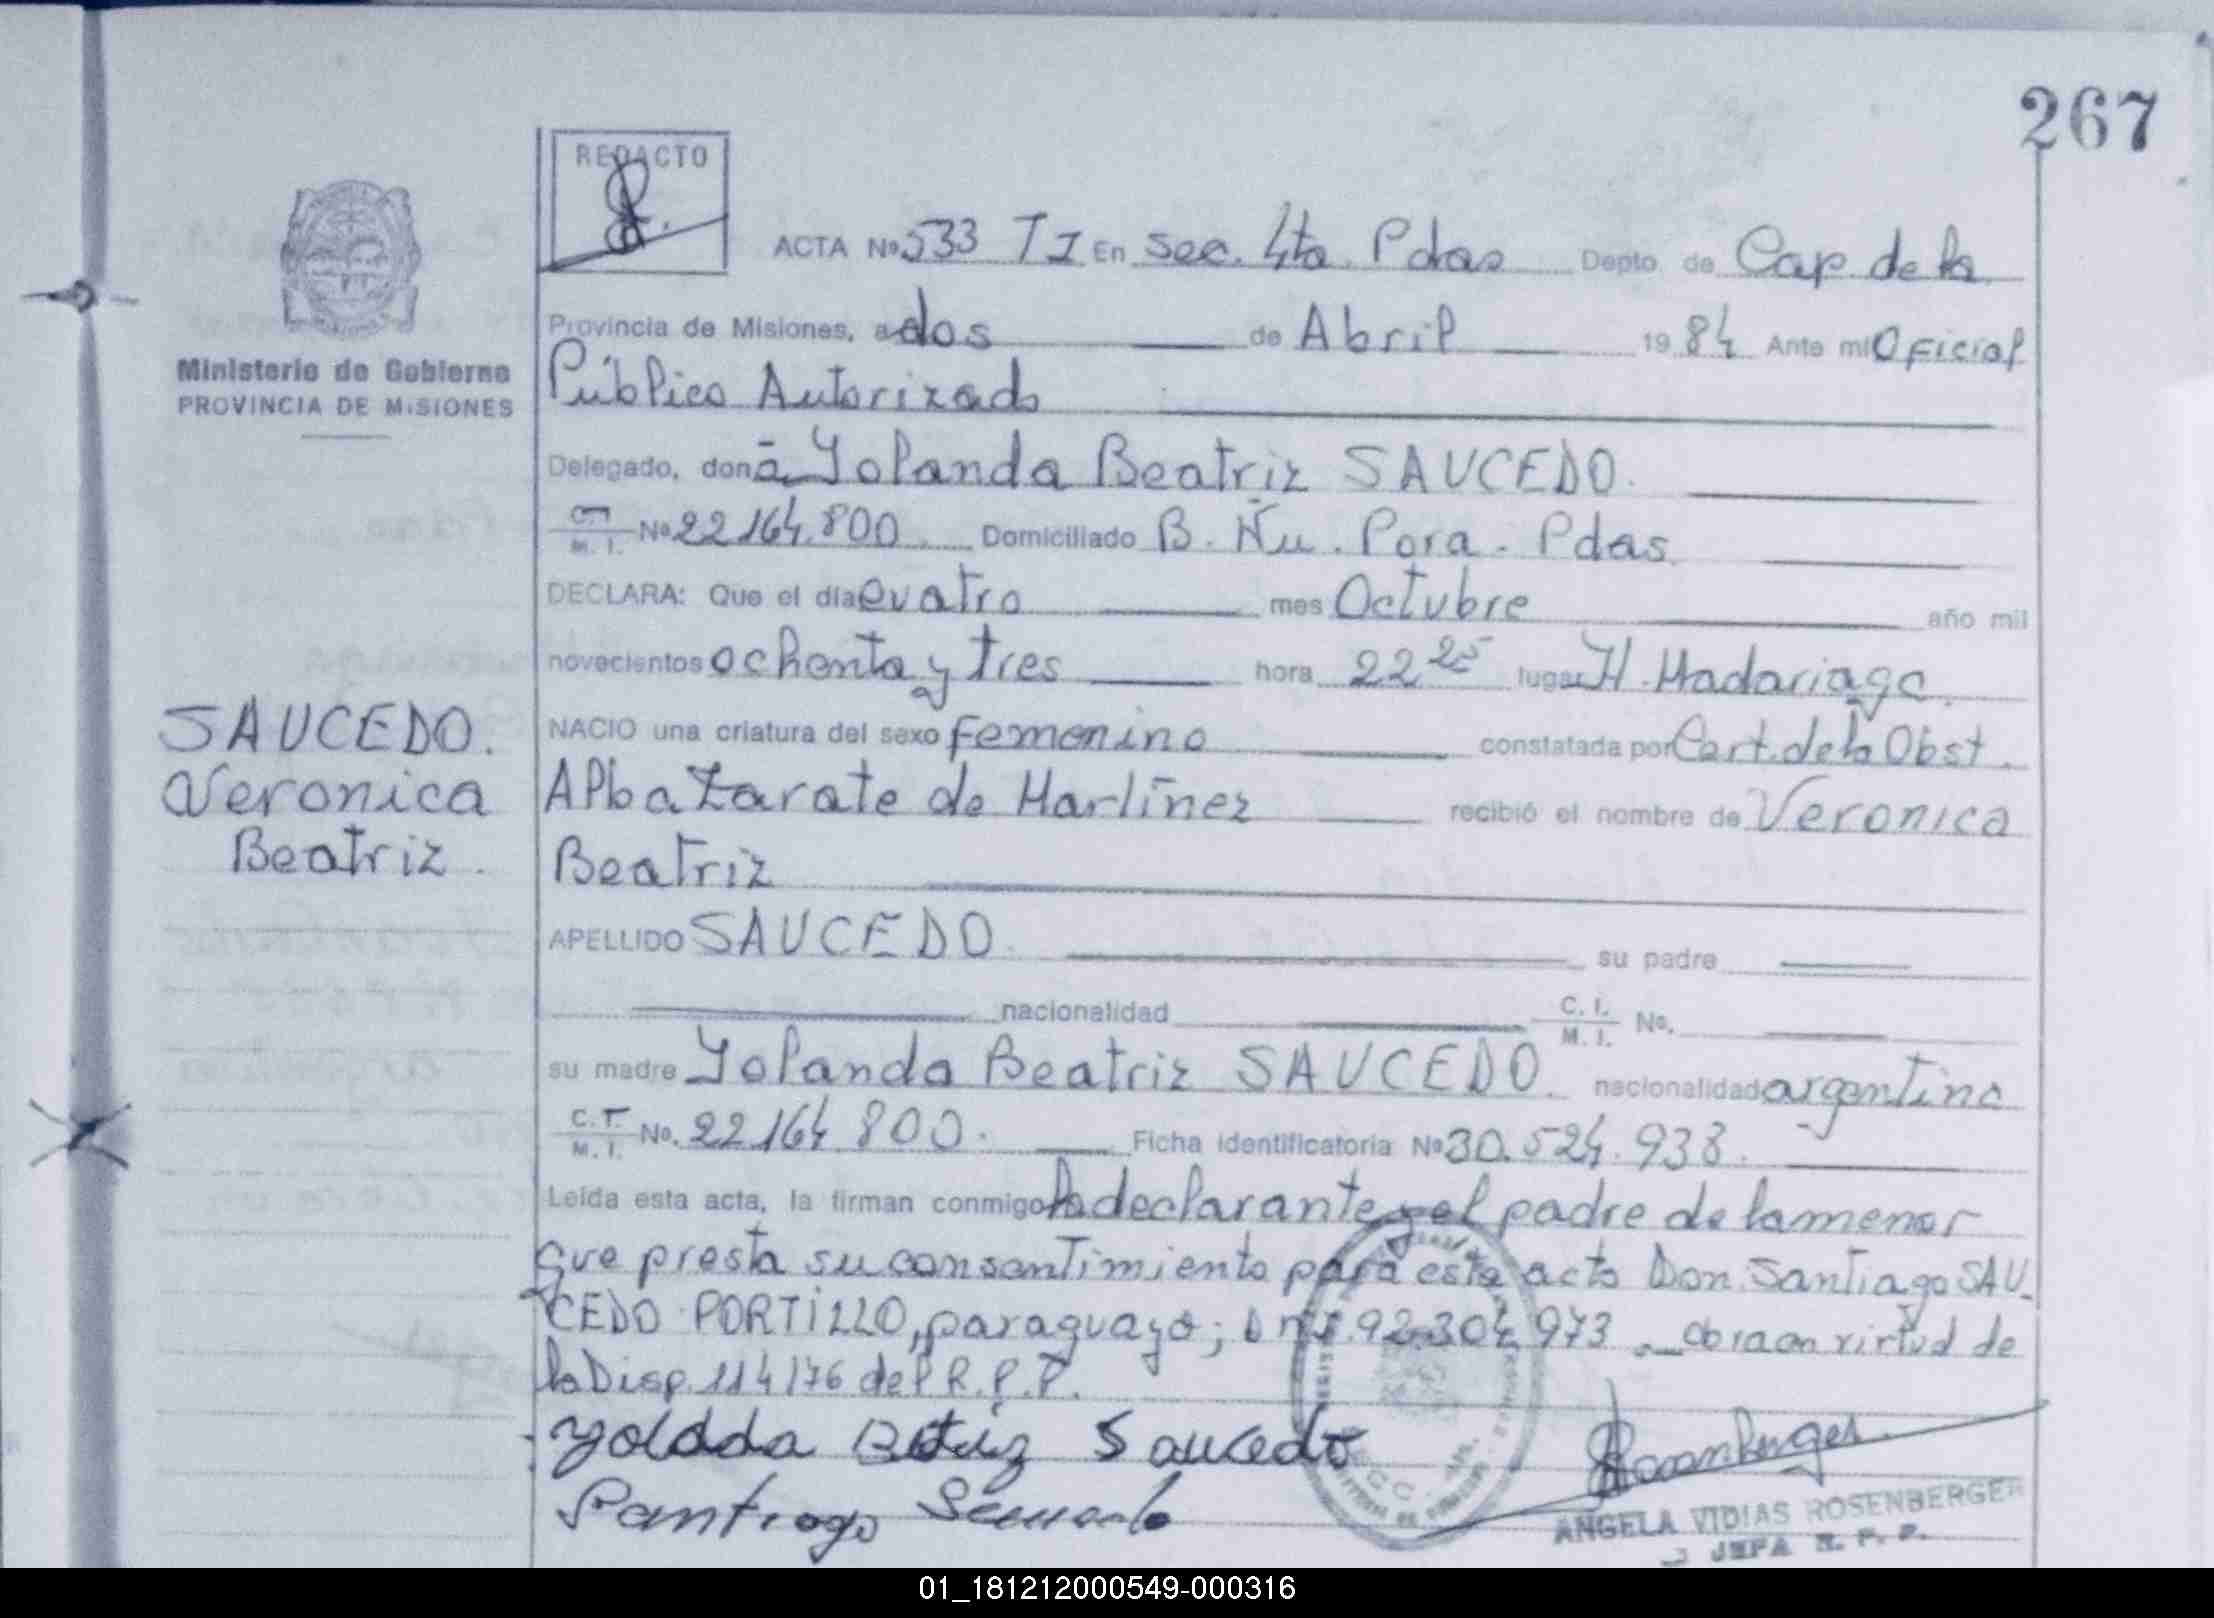 267
REDACTO
ACTA Nº 533 TI En Sec. 4ta. Pdas Depto de Cap. de la
Provincia de Misiones, a dos de Abril 1984 Ante mi Oficial
Ministerio de Gobierno
PROVINCIA DE MISIONES
Público Autorizado
Delegado, doña Yolanda Beatriz SAUCEDO.
C.I. M. I. Nº 22164.800. Domiciliado B. Ñu. Pora. Pdas
DECLARA: Que el día cuatro mes Octubre año mil
novecientos ochenta y tres hora 22 25 lugar H. Madariaga.
SAUCEDO.
Veronica
Beatriz.
NACIO una criatura del sexo femenino constatada por Cert. de la Obst.
Alba Zarate de Martínez recibió el nombre de Veronica
Beatriz
APELLIDO SAUCEDO. su padre
nacionalidad C. I. M. I. No.
su madre Yolanda Beatriz SAUCEDO. nacionalidad argentina
C. I. M. I. No. 22164 800. Ficha identificatoria Nº 30.524.938.
Leída esta acta, la firman conmigo la declarante y el padre de la menor
que presta su consentimiento para este acto Don Santiago SAU-
CEDO PORTILLO, paraguayo; DNI. 92.304 973 obra en virtud de
la Disp. 114/76 del R.P.P.
Yolada Betriz Saucedo
Santiago
ANGELA VIDIAS ROSENBERGER
JEFA R. P. P.
01_181212000549-000316